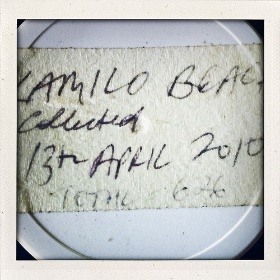 KAMILO BEAC
Collected
13th APRIL 2010
626